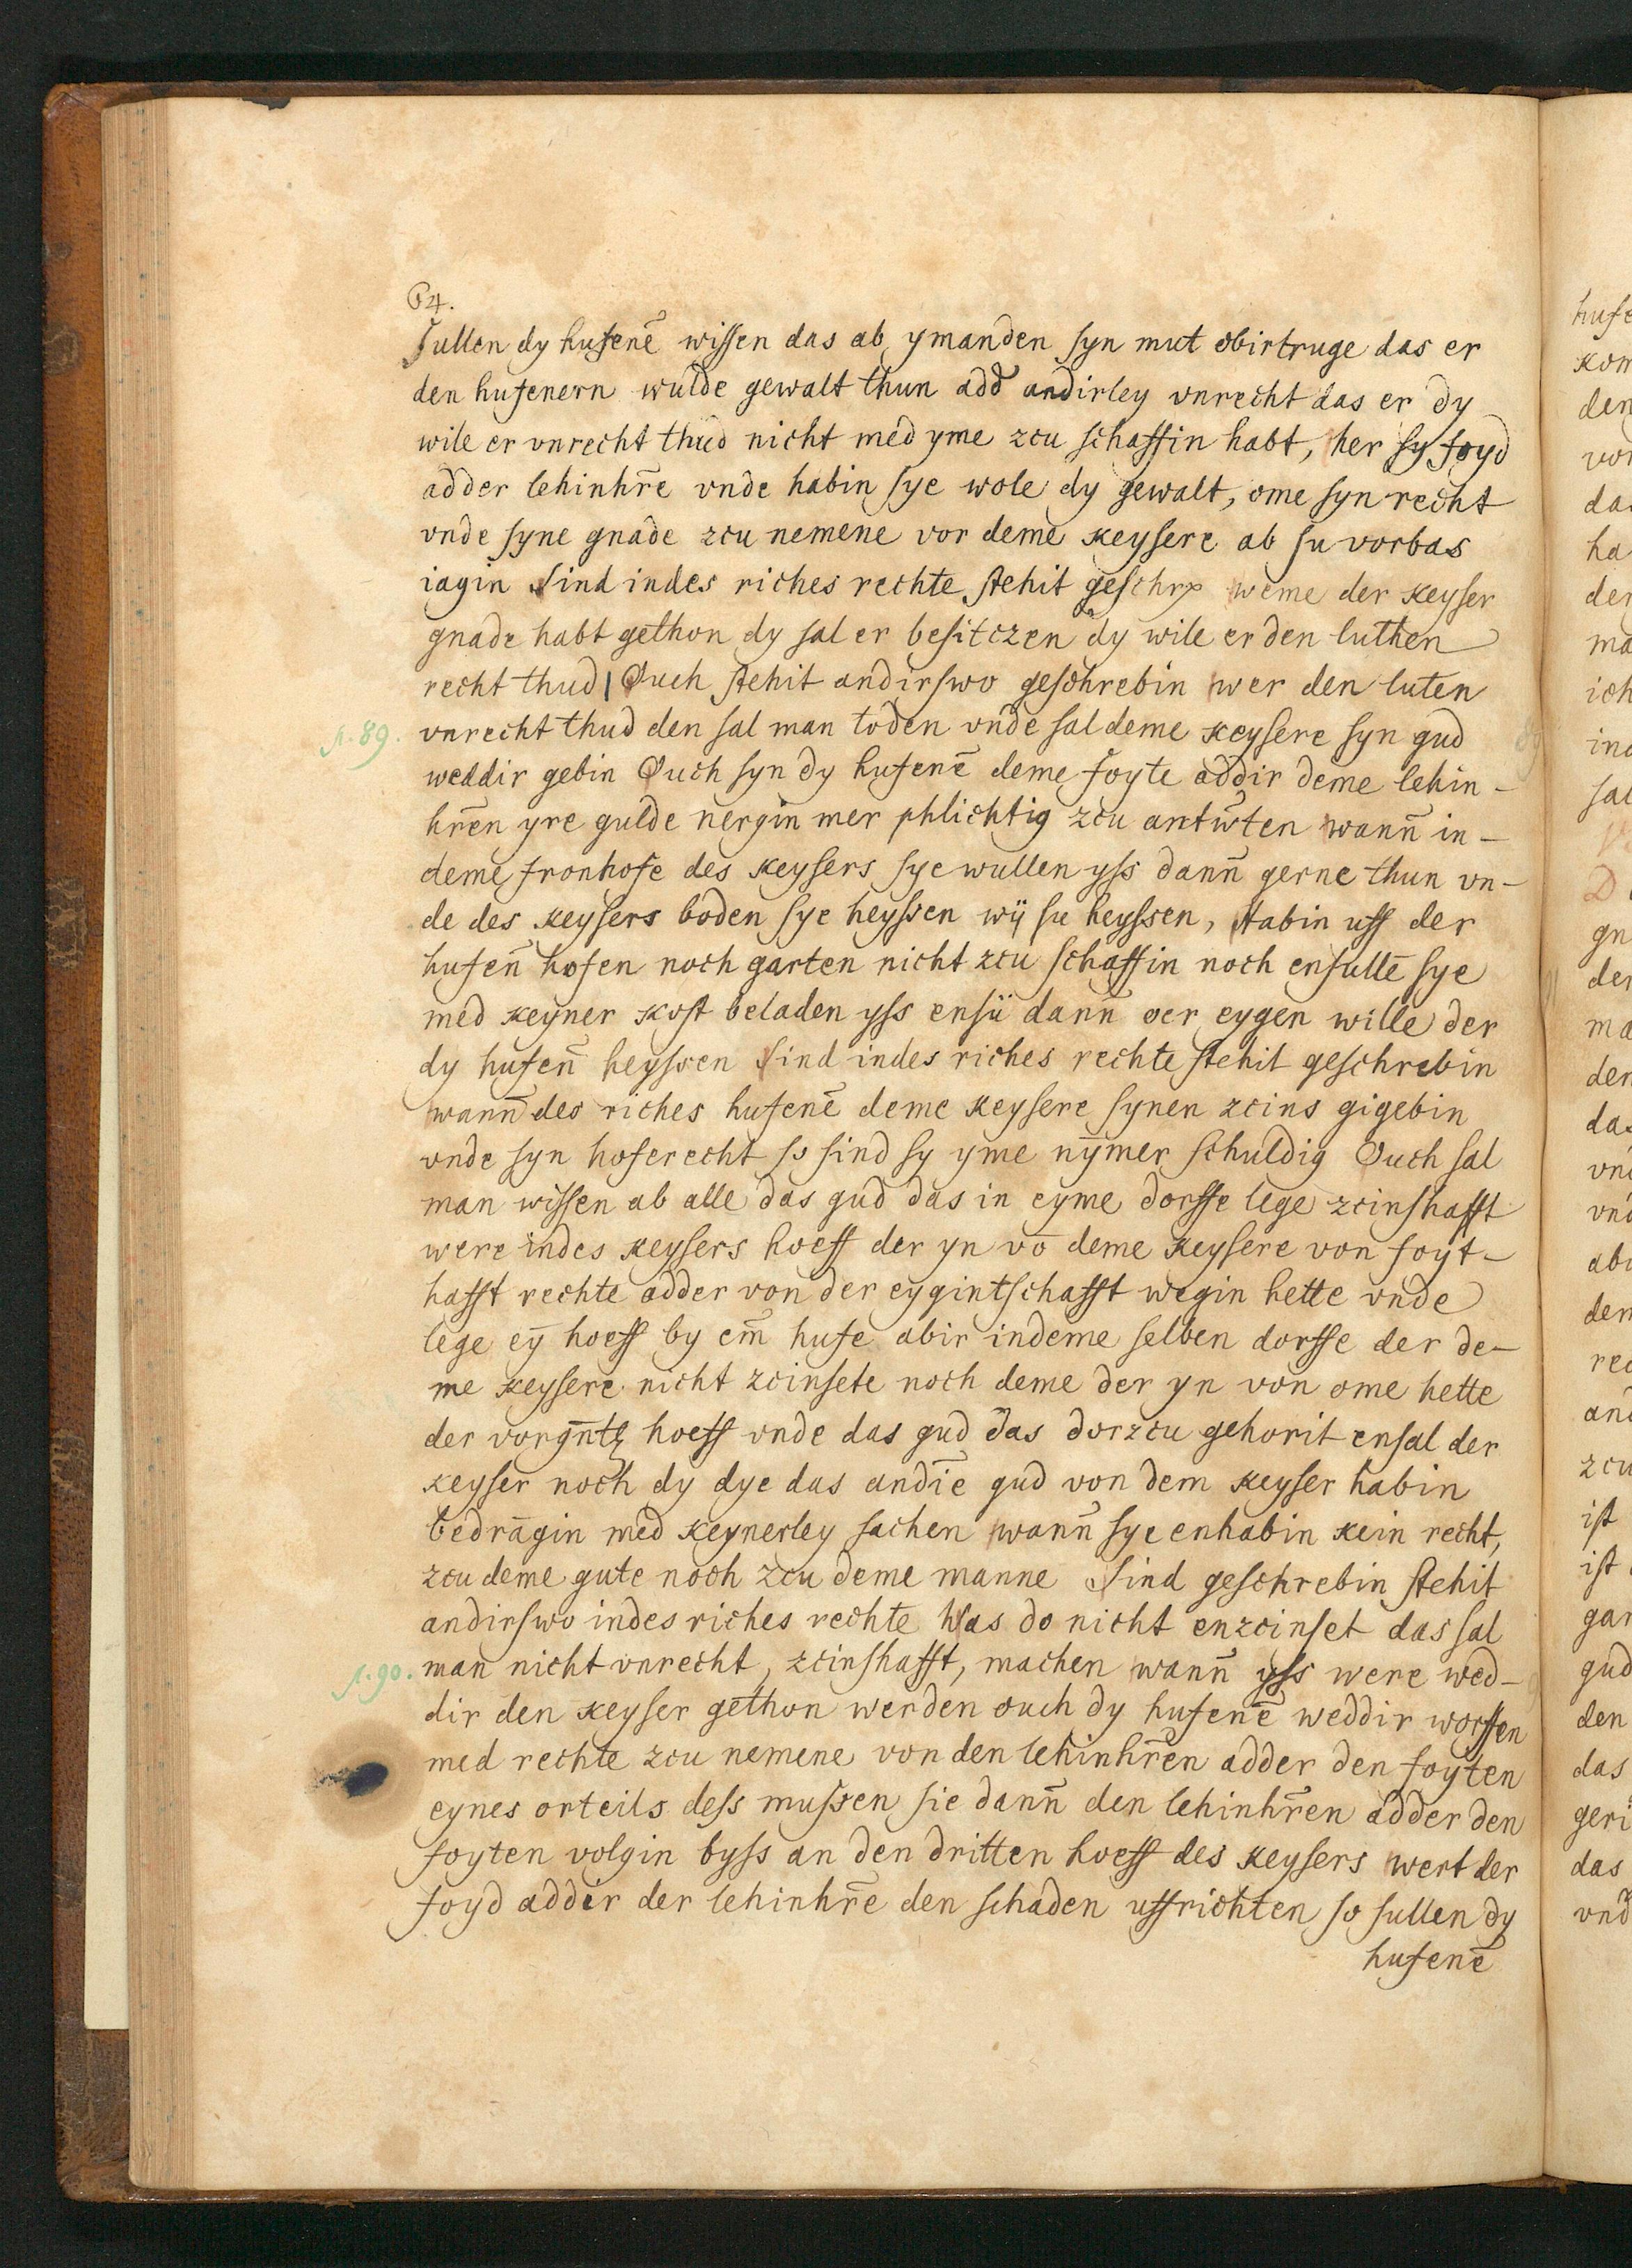 64.
Sullen dy hufenē wissen das ab ymanden syn mut obirtruge das er
den hufenern wulde gewalt thun add andirley vnrecht das er dy
wile er vnrecht thud nicht med yme zcu schaffin habt, her sy foyd
adder lehinhr̄e vnde habin sye wole dy gewalt, ome syn recht
vnde syne gnade zcu nemene vor deme keysere ab su vorbas
iagin Sind indes riches rechte stehit geschrꝛ weme der keyser
gnade habt gethon dy sal er besitczen dy wile er den luthen
recht thud | Ouch stehit andirswo geschrebin wer den luten
p. 89. vnrecht thud den sal man toden vnde sal deme keysere syn gud
weddir gebin Ouch syn dy hufenē deme foyte addir deme lehin-
hr̄en yre gulde nergin mer phlichtig zcu antw̄ten wann̄ in-
deme fronhofe des keysers sye wullen yss dann̄ gerne thun vn-
de des keysers boden sye heyssen wÿ su heyssen, Habin uff der
hufen̄ hofen noch garten nicht zcu schaffin noch ensullē sye
med keyner kost beladen yss ensü dann̄ oer eygen wille der
dy hufen̄ heyssen Sind indes riches rechte stehit geschrebin
wann̄ des riches hufenē deme keysere synen zcins gigebin
vnde syn hoferecht so sind sy yme nȳmer schuldig Ouch sal
man wissen ab alle das gud das in eyme dorffe lege zcinshafft
were indes keysers hoeff der yn vō deme keysere von foyt-
hafft rechte adder von der eygintschafft wegin hette vnde
lege eȳ hoeff by em̄ hufe abir indeme selben dorffe der de-
me keysere nicht zcinsete noch deme der yn von ome hette
der vorgn̄tꝫ hoeff vnde das gud das dorzcu gehorit ensal der
keyser noch dy dye das andīe gud von dem keyser habin
bedrāgin med keynerley sachen wann̄ sye enhabin kein recht,
zcu deme gute noch zcu deme manne Sind geschrebin stehit
andirswo indes riches rechte Was do nicht enzcinset das sal
p. 90. man nicht vnrecht, zcinshafft, machen wann̄ yss were wed-
dir den keyser gethon werden ouch dy hufenē weddir worffen
med rechte zcu nemene von den lehinhr̄en adder den foyten
eynes orteils dess mussen sie dann̄ den lehinhr̄en adder den
foyten volgin byss an den dritten hoeff des keysers wert der
foyd addir der lehinhr̄e den schaden uffrichten so sullen dy
hufenē